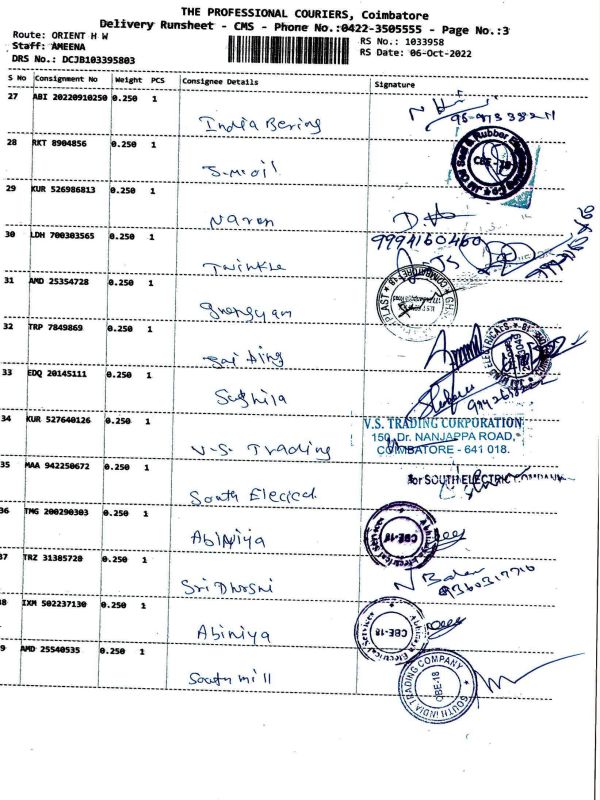 THE PROFESSIONAL COURIERS, Coimbatore
Delivery Runsheet - CMS - Phone No.:0422-3505555 - Page No.:3
Route: ORIENT H W
RS No.: 1033958
Staff: AMEENA
RS Date: 06-Oct-2022
DRS No.: DCJB103395803
S No Consignment No Weight PCS Consignee Details Signature
27 ABI 20220910250 0.250 1
India Bering
28 RKT 8904856 0.250 1
CBE - 18
29 KUR 526986813 0.250 1
Naren
30 LDH 700303565 0.250 1
9994160460
Twinkle
31 AMD 25354728 0.250 1
32 TRP 7849869 0.250 1
33 EDQ 20145111 0.250 1
34 KUR 527640126 0.250 1
V.S. TRADING CORPORATION
150, Dr. NANJAPPA ROAD,
COIMBATORE - 641 018.
V.S. Trading
35 MAA 942250672 0.250 1
for SOUTH ELECTRIC COMPANY
South Elecical
36 TMG 200290303 0.250 1
CBE-18
Abiniya
37 TRZ 31385728 0.250 1
Sri Dharsni
38 IXM 502237130 0.250 1
CBE-18
Abiniya
39 AMD 25540535 0.250 1
SOUTH INDIA TRADING COMPANY
CBE-18
South mill